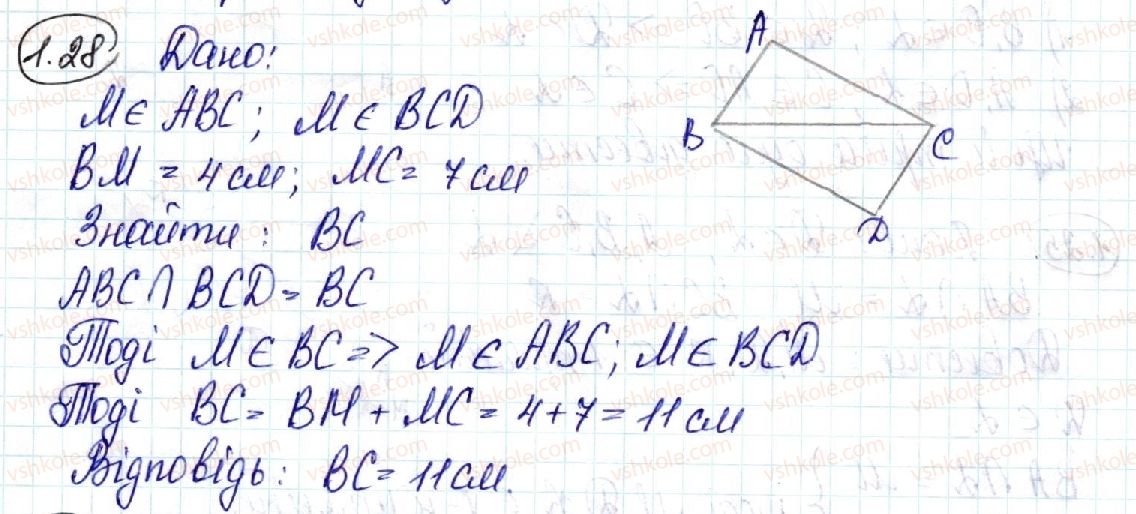 1.28 Дано:
M ∈ ABC; M ∈ BCD
BM = 4 см; MC = 7 см
Знайти: BC
ABC ∩ BCD = BC
Тоді M ∈ BC => M ∈ ABC; M ∈ BCD
Тоді BC = BM + MC = 4 + 7 = 11 см
Відповідь: BC = 11 см.
A
B
C
D
vshkole.com